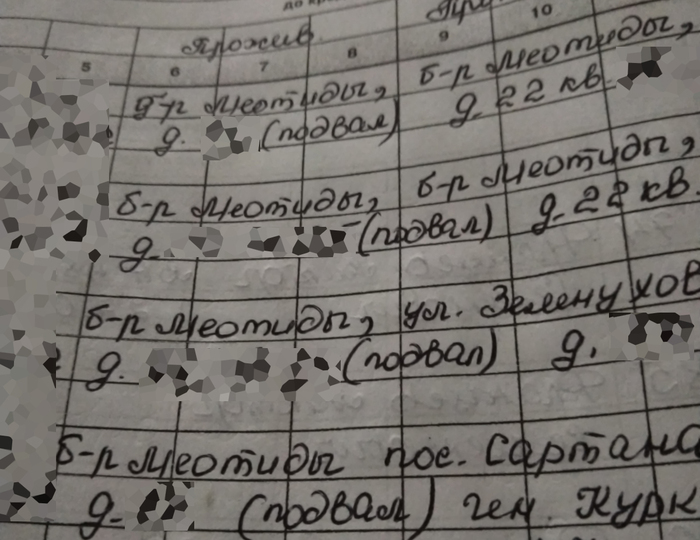 Прожив.
5 6 7 8 9 10
б-р Меотиды, б-р Меотиды,
д. (подвал) д. 22 кв.
б-р Меотиды, б-р Меотиды,
д. (подвал) д. 22 кв.
б-р Меотиды, ул. Зеленухов
д. (подвал) д.
б-р Меотиды пос. Сартана
д. (подвал) ген. Курк